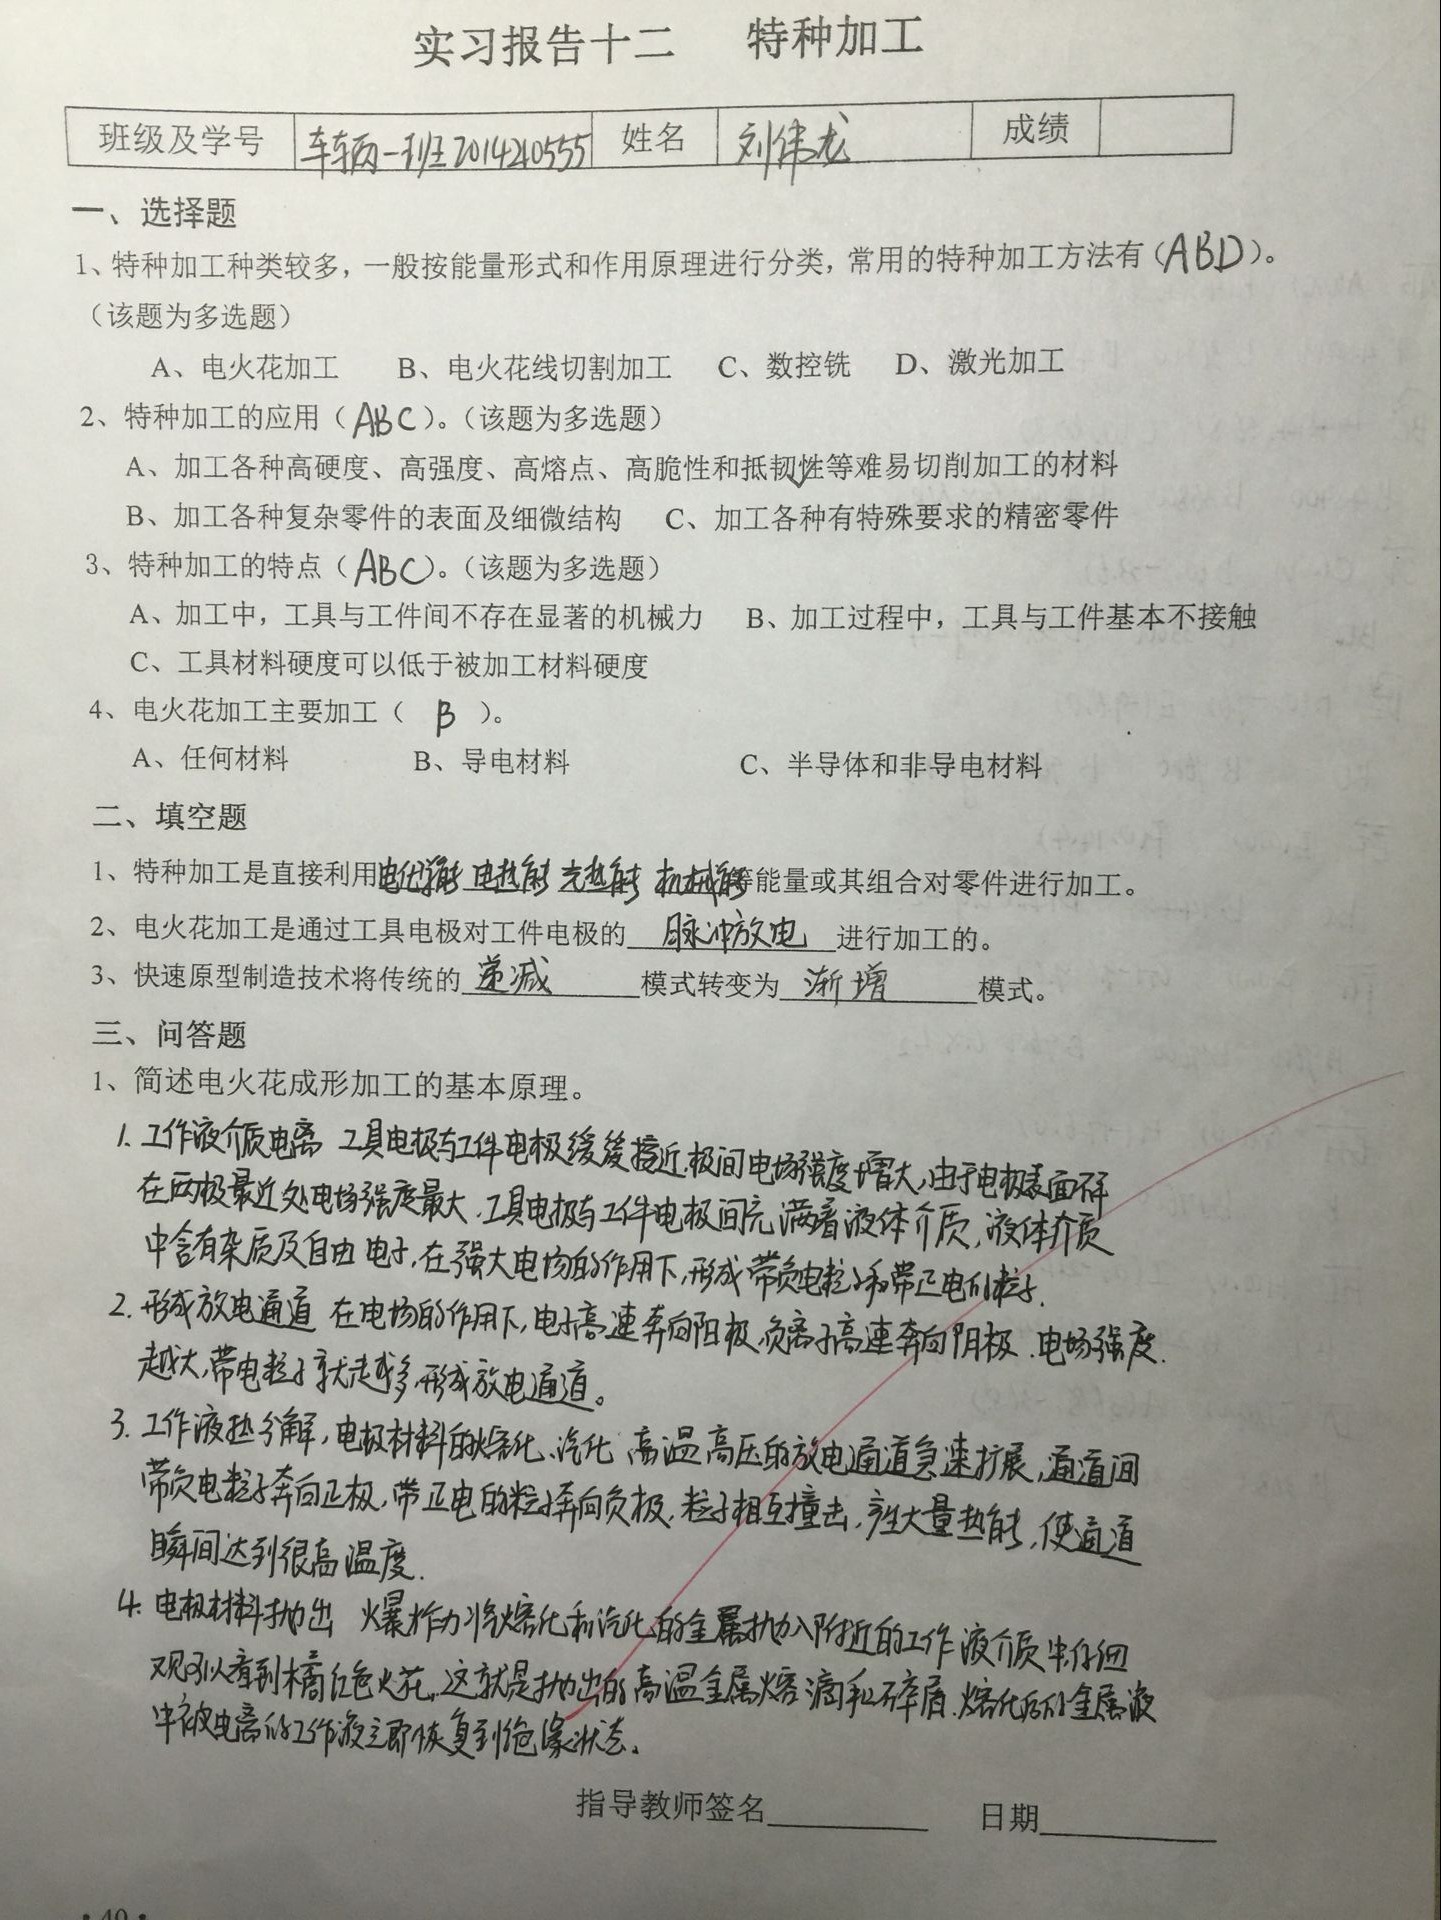 实习报告十二 特种加工
班级及学号 车辆一班2014240555 姓名 刘伟龙 成绩
一、选择题
1、特种加工种类较多，一般按能量形式和作用原理进行分类，常用的特种加工方法有（ABD）。
（该题为多选题）
A、电火花加工 B、电火花线切割加工 C、数控铣 D、激光加工
2、特种加工的应用（ABC）。（该题为多选题）
A、加工各种高硬度、高强度、高熔点、高脆性和抵韧性等难易切削加工的材料
B、加工各种复杂零件的表面及细微结构 C、加工各种有特殊要求的精密零件
3、特种加工的特点（ABC）。（该题为多选题）
A、加工中，工具与工件间不存在显著的机械力 B、加工过程中，工具与工件基本不接触
C、工具材料硬度可以低于被加工材料硬度
4、电火花加工主要加工（ B ）。
A、任何材料 B、导电材料 C、半导体和非导电材料
二、填空题
1、特种加工是直接利用电化学能 电热能 光热能 机械能等能量或其组合对零件进行加工。
2、电火花加工是通过工具电极对工件电极的 脉冲放电 进行加工的。
3、快速原型制造技术将传统的 递减 模式转变为 渐增 模式。
三、问答题
1、简述电火花成形加工的基本原理。
1. 工作液介质电离 工具电极与工件电极缓缓接近,极间电场强度增大,由于电极表面不平
在两极最近处电场强度最大.工具电极与工件电极间充满着液体介质,液体介质
中含有杂质及自由电子,在强大电场的作用下,形成带负电粒子和带正电的粒子.
2. 形成放电通道 在电场的作用下,电子高速奔向阳极,负离子高速奔向阴极.电场强度.
越大,带电粒子就越多,形成放电通道。
3. 工作液热分解,电极材料的熔化、汽化 高温高压的放电通道急速扩展,通道间
带负电粒子奔向正极,带正电的粒子奔向负极,粒子相互撞击,产生大量热能,使通道
瞬间达到很高温度.
4. 电极材料抛出 爆炸力将熔化和汽化的金属抛入附近的工作液介质中仔细
观可以看到橘红色火花,这就是抛出的高温金属熔滴和碎屑.熔化后的金属液
中被电离的工作液立即恢复到绝缘状态.
指导教师签名 日期
· 40 ·